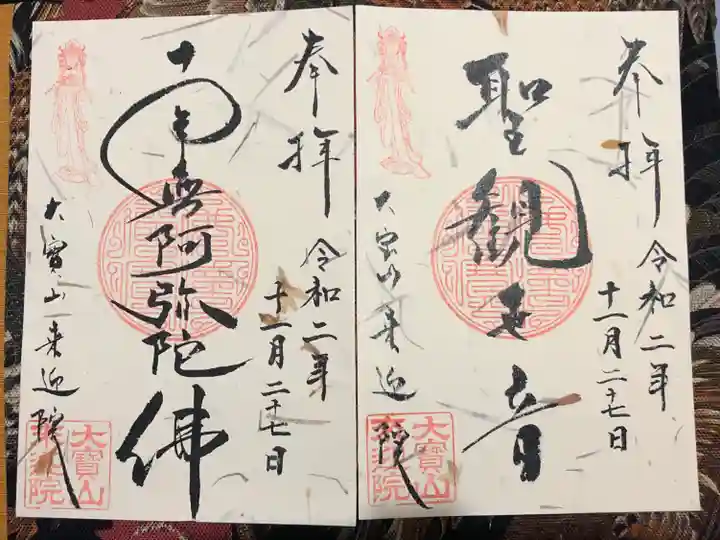 奉拝
令和二年
十一月二十七日
聖観世音
大宝山来迎院
大寶山
来迎院
奉拝
令和二年
十一月二十七日
南無阿弥陀佛
大寶山来迎院
大寶山
来迎院